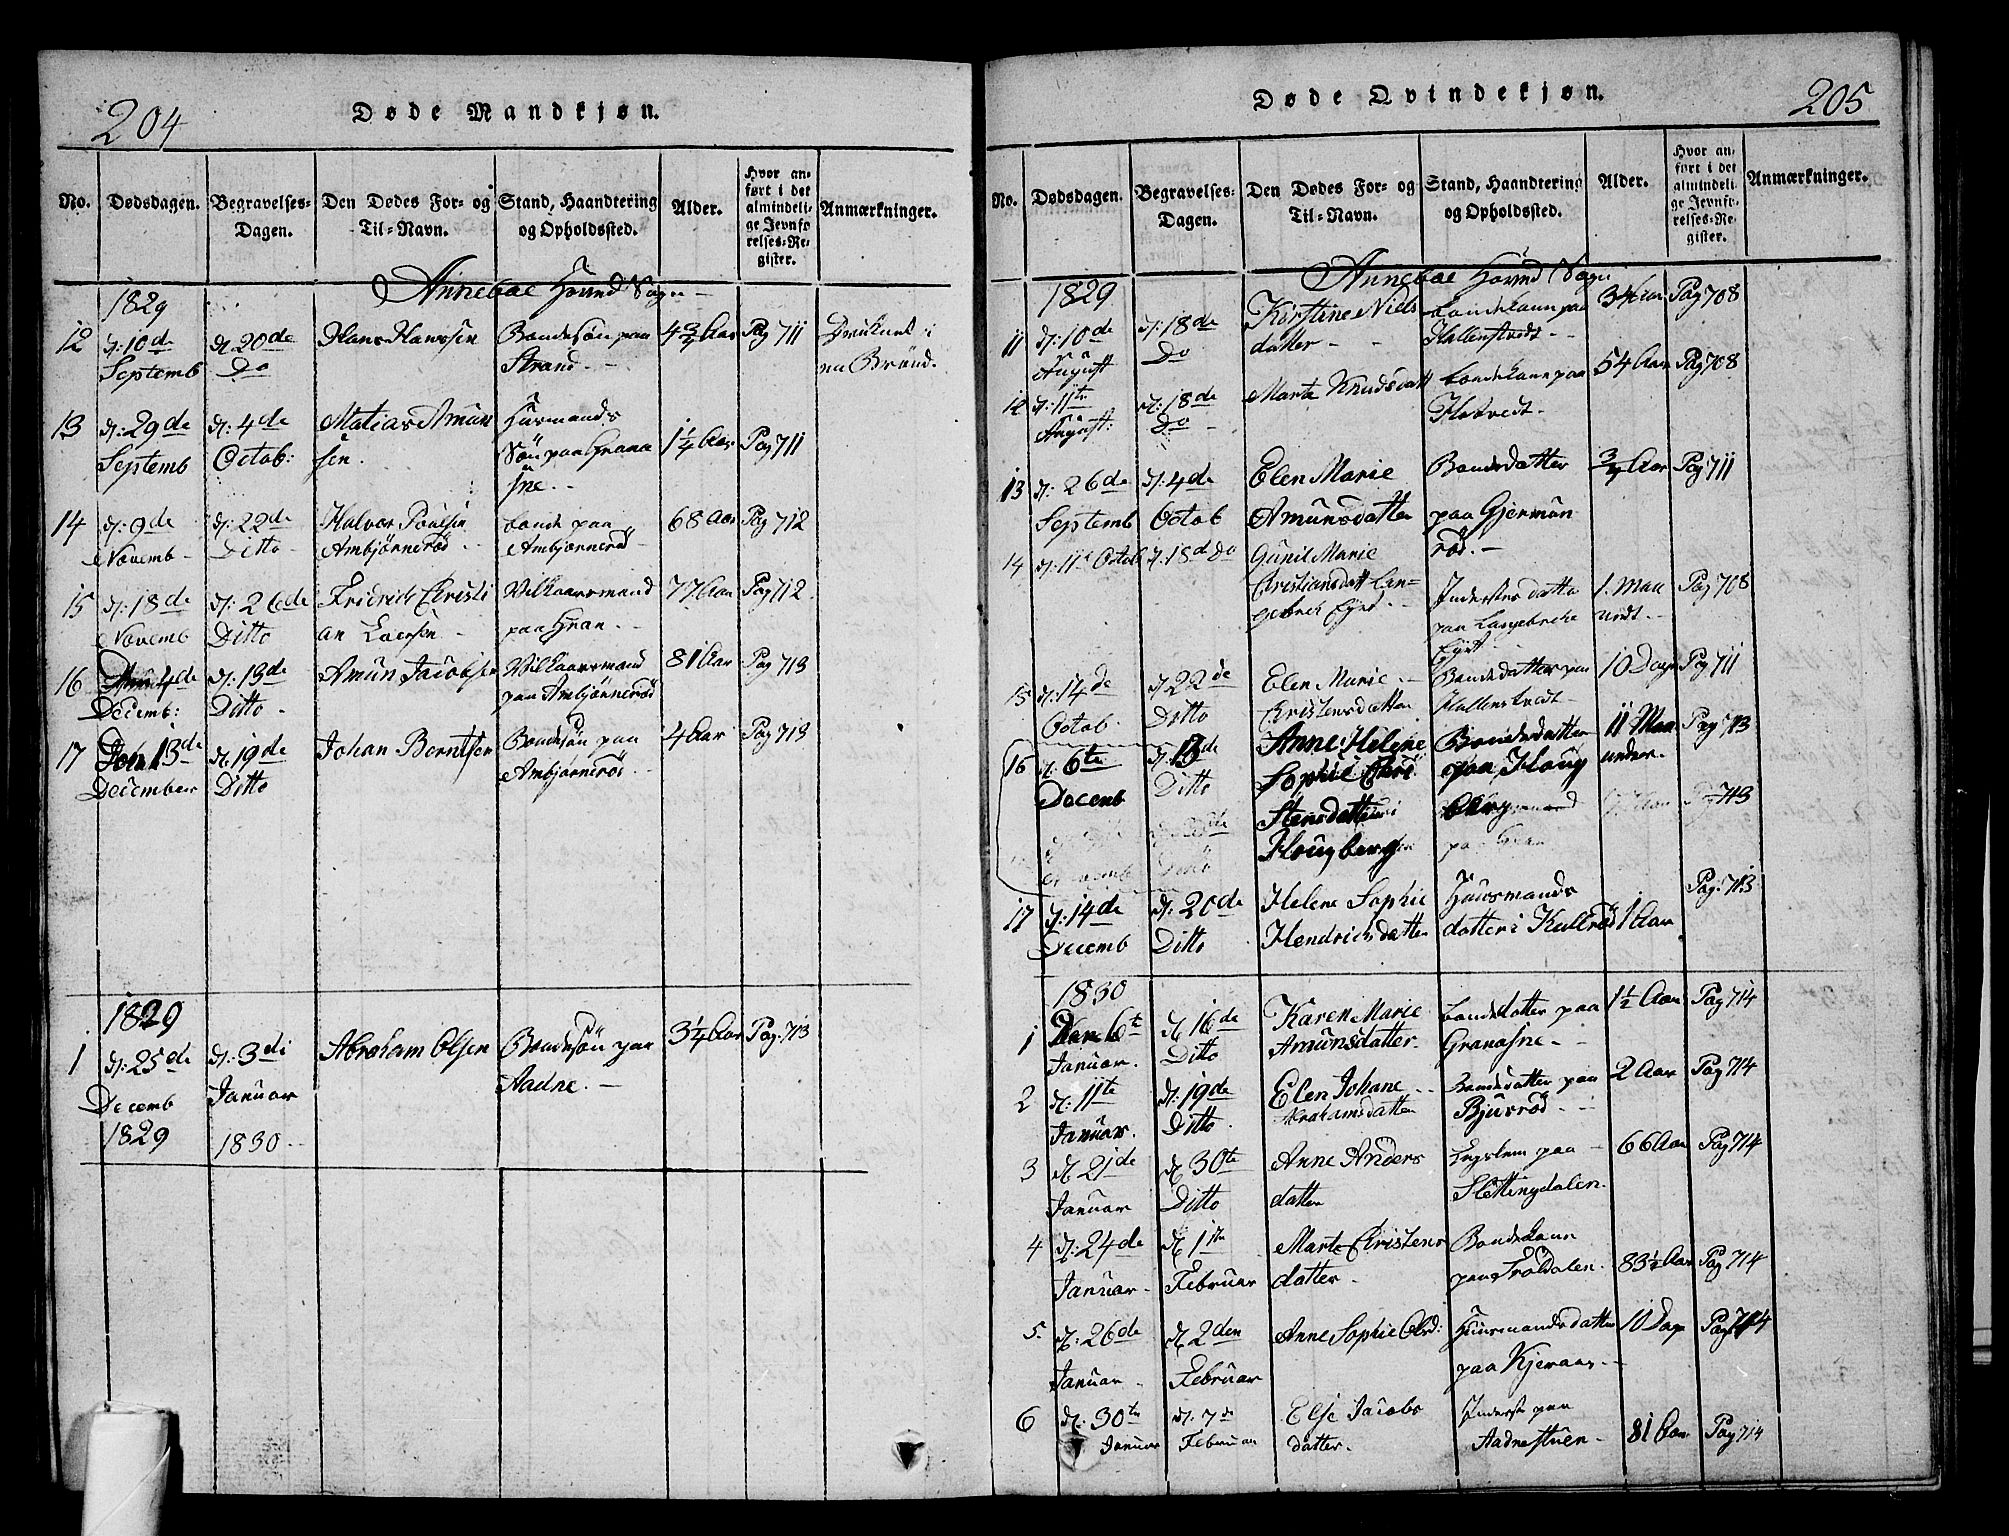 204
Døde Mandkjøn.
No.
Dødsdagen.
Begravelses-
Dagen.
Den Dødes For- og
Til-Navn.
Stand, Haandtering
og Opholdssted.
Alder.
Hvor an-
ført i det
almindeli-
ge Jevnfø-
relses-Re-
gister.
Anmærkninger.
Annebøe Hoved Sogn
1829
12 d: 10de
Septemb
d 20de
Do
Hans Hanssen
Bondesøn paa
Strand.
4 3/4 Aar
Pag 711
Druknet i
en Brønd.
13 d: 29de
Septemb
d: 4de
Octob:
Matias Amun
sen.
Huusmands
Søn paa Grana
sne.
1 1/4 Aar
Pag 711
14 d: 9de
Novemb
d: 22de
Ditto
Halvor Poulsen
Ambjørnerød
bonde paa
Ambjørnerød
68 Aar
Pag 712
15 d: 18de
Novemb
d: 26de
Ditto
Fridrich Christi
an Laersen
Vilkaarsmand
paa Gran.
77 Aar
Pag 712
16 4de
Decemb:
d: 13de
Ditto
Amun Jacobsen
Vilkaarsmand
paa Ambjørnerød
81 Aar
Pag 713
17 13de
December
d: 19de
Ditto
Johan Berntsen
Bondesøn paa
Ambjørnerød
4 Aar
Pag 713
1829
1 d: 25de
Decemb
1829
d: 3di
Januar
1830
Abraham Olsen
Bondesøn paa
Aadne.
3 1/4 Aar
Pag: 713
205
Døde Qvindekjøn.
No.
Dødsdagen.
Begravelses-
Dagen.
Den Dødes For- og
Til-Navn.
Stand, Haandtering
og Opholdssted.
Alder.
Hvor an-
ført i det
almindeli-
ge Jevnfø-
relses-Re-
gister.
Anmærkninger.
Annebøe Hoved Sogn
1829
11 d: 10de
August
d: 18de
Do
Kirstine Niels
datter
bondekone paa
Hallenstvedt
34 Aar
Pag 708
12 d: 11te
August:
d: 18de
Do
Marte Knudsdatt
bondekone paa
54 Aar
Pag 708
13 d: 26de
Septemb
d: 4de
Octob
Elen Marie
Amunsdatter
Bondedatter
paa Gjermun
rød.
3/4 Aar
Pag 711
14 d: 11te Octob
d: 18d Do
Gunil Marie
Christiansdatt Lan-
gebrek Eyet.
Inderstes datter
paa Langebreke
Eyet
1. Maa
nedt.
Pag 708
15 d: 14de
Octob
d 22de
Ditto
Elen Marie
Christensdatter
Bondedatter paa
Hallenstvedt
10 Dage
Pag 711
16 d: 6te
Decemb
d: 13de
Ditto
Anne Helene
Sophie Chri
stensdatter
Hougberg
Bondedatter
paa Houg
11 Maa
neder.
Pag: 713
Pag 713
17 d: 14de
Decemb
d: 20de
Ditto
Helene Sophie
Hendrichsdatter
Huusmands
datter i Kullerød
1 Aar
Pag: 713
1830
1 6te
Januar.
d 16de
Ditto
Karen Marie
Amunsdatter.
bondedatter paa
Granasne
1 1/2 Aar
Pag 714
2 d: 11te
Januar.
d: 19de
Ditto
Elen Johane
Abrahamsdatter
Bondedatter paa
Bjurrød
2 Aar
Pag 714
3 d 21de
Januar
d 30te
Ditto
Anne Anders
datter
Legslem paa
Slettingdalen.
66 Aar
Pag 714
4 d: 24de
Januar
d 1ste
Februar
Marte Christens
datter
Bondekone
paa Troldalen.
83 1/2 Aar
Pag 714
5. d: 26de
Januar
d 2den
Februar
Anne Sophie Olsd:
Huusmandsdatter
paa Kjeraas
10 Dage
Pag 714
6 d: 30te
Januar
d: 7de
Februar
Else Jacobs
datter.
Inderste paa
Aadnestuen
81 Aar
Pag 714